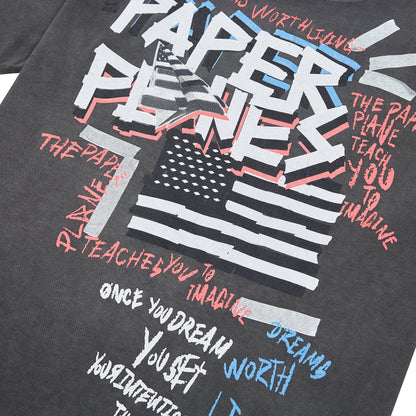 IS WORTH LIVING
PAPER
PLANES
THE PAPER
PLANE
TEACHES YOU TO
IMAGINE
THE PAP
PLANE
TEACH
YOU
TO
IMAGINE
ONCE YOU DREAM
YOU SET
YOUR INTENTION
DREAMS
WORTH